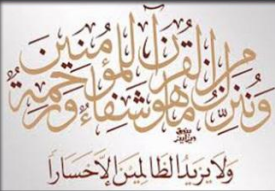 وننزل من القرآن ما هو شفاء ورحمة للمؤمنين
ولا يزيد الظالمين إلا خسارا